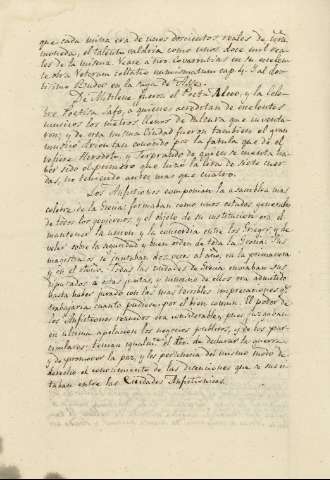 que cada mina era de unos doscientos reales de esta
moneda, el talento valdria como unos doce mil rea-
les de la misma. Vease a Covarrubias en su excelen-
te obra Veterum collatio numismatum cap. 4. y al doc-
tisimo Budeo en la suya de Asse.
De Mitilene fueron el Poeta Alceo, y la cele-
bre Poetisa Safo, a quienes acreditan de excelentes
los metros llenos de dulzura que inventa-
ron; y de esta misma Ciudad fueron tambien el gran
musico Arion tan conocido por la fabula que de el
refiere Herodoto, y Terpandro de quien se cuenta ha-
ber sido el primero que uso la lira de siete cuer-
das, no teniendo antes mas que cuatro.
Los Anfictiones componian la asamblea mas
celebre de la Grecia: formaban como unos estados generales
de todos los gobiernos, y el objeto de su institucion era el
mantener la union, y la concordia entre los Griegos, y de
velar sobre la seguridad y buen orden de toda la Grecia. Sus
magistrados se juntaban dos veces al año, en la primavera
y en el otoño. Todas las ciudades de Grecia enviaban sus
diputados a estas juntas, y ninguno de ellos era admitido
hasta haber jurado con las mas terribles imprecaciones que
trabajaria cuanto pudiese por el bien comun. El poder de
los Anfictiones reunidos era considerable, pues juzgaban
en ultima apelacion los negocios publicos, y de los par-
ticulares: tenian igualm.te el dro. de declarar la guerra
y de promover la paz, y les pertenecia del mismo modo de
derecho el conocimiento de las disenciones que se susci-
taban entre las Ciudades Anfictionicas.